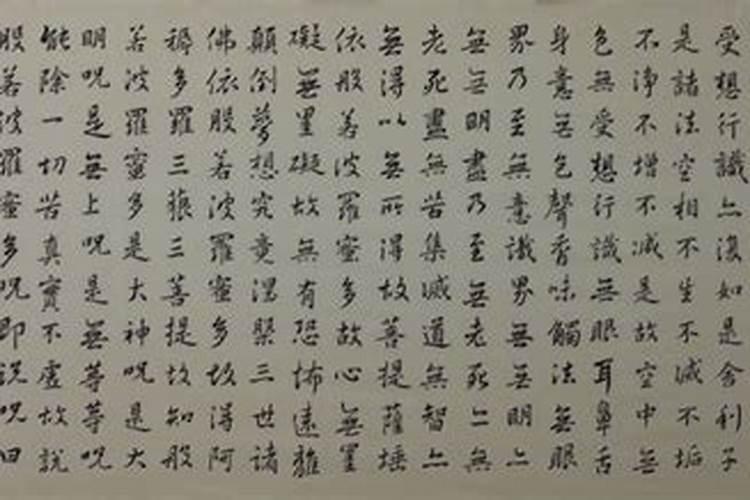 受想行識亦復如是舍利子
是諸法空相不生不滅不垢
不淨不增不減是故空中無
色無受想行識無眼耳鼻舌
身意無色聲香味觸法無眼
界乃至無意識界無無明亦
無無明盡乃至無老死亦無
老死盡無苦集滅道無智亦
無得以無所得故菩提薩埵
依般若波羅蜜多故心無罣
礙無罣礙故無有恐怖遠離
顛倒夢想究竟涅槃三世諸
佛依般若波羅蜜多故得阿
耨多羅三藐三菩提故知般
若波羅蜜多是大神呪是大
明呪是無上呪是無等等呪
能除一切苦真實不虛故說
般若波羅蜜多呪即說呪曰